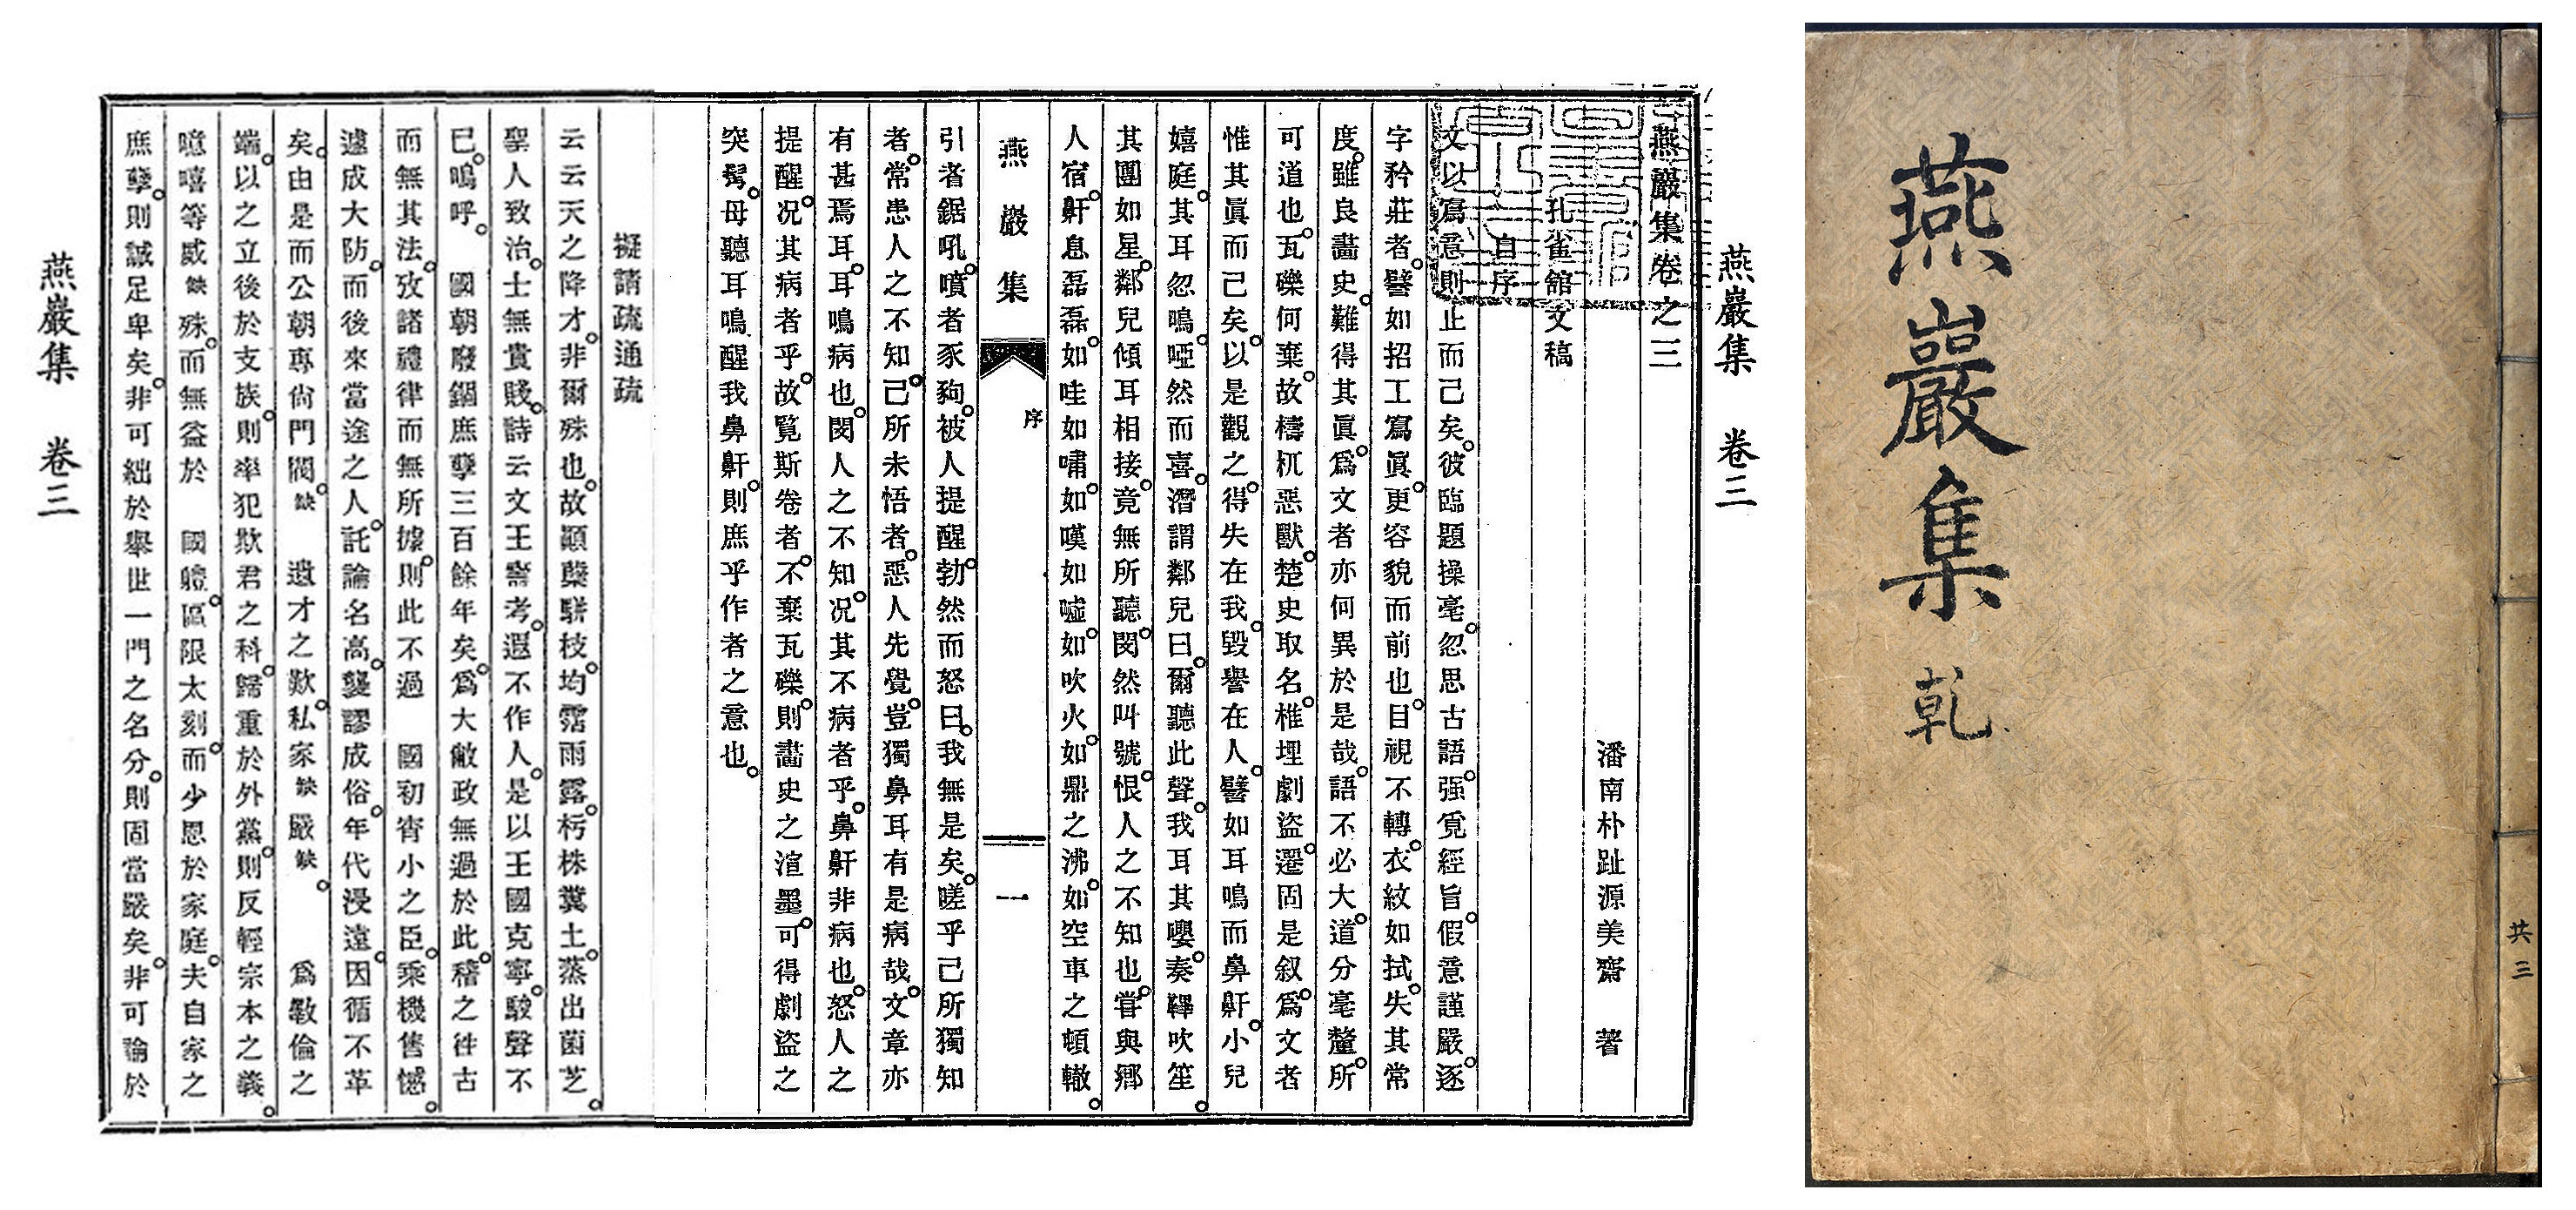 共三
燕巖集 乾
燕巖集 卷三
燕巖集卷之三
潘南朴趾源美齋 著
孔雀館文稿
自序
文以寫意則止而已矣。彼臨題操毫。忽思古語。强覓經旨。假意謹嚴。逐
字矜莊者。譬如招工寫眞。更容貌而前也。目視不轉。衣紋如拭。失其常
度。雖良畵史。難得其眞。爲文者亦何異於是哉。語不必大。道分毫釐。所
可道也。瓦礫何棄。故檮杌惡獸。楚史取名。椎埋劇盜。遷固是叙。爲文者
惟其眞而已矣。以是觀之。得失在我。毀譽在人。譬如耳鳴而鼻鼾。小兒
嬉庭。其耳忽鳴。啞然而喜。潛謂鄰兒曰。爾聽此聲。我耳其嚶。奏鞸吹笙。
其團如星。鄰兒傾耳相接。竟無所聽。閔然叫號。恨人之不知也。甞與鄉
人宿。鼾息磊磊。如哇如嘯。如嘆如噓。如吹火。如鼎之沸。如空車之頓轍。
燕巖集 序 一
引者鋸吼。噴者豕豞。被人提醒。勃然而怒曰。我無是矣。嗟乎己所獨知
者。常患人之不知。己所未悟者。惡人先覺。豈獨鼻耳有是病哉。文章亦
有甚焉耳。耳鳴病也。閔人之不知。况其不病者乎。鼻鼾非病也。怒人之
提醒。况其病者乎。故覽斯卷者。不棄瓦礫。則畵史之渲墨。可得劇盜之
突髩。毋聽耳鳴。醒我鼻鼾。則庶乎作者之意也。
擬請疏通疏
云云天之降才。非爾殊也。故顚蘖騈枝。均霑雨露。朽株糞土。蒸出菌芝。
聖人致治。士無貴賤。詩云文王壽考。遐不作人。是以王國克寧。駿聲不
已。嗚呼。 國朝廢錮庶孽三百餘年矣。爲大敝政無過於此。稽之徃古
而無其法。攷諸禮律而無所據。則此不過 國初宵小之臣。乘機售憾。
遽成大防。而後來當途之人。託論名高。襲謬成俗。年代浸遠。因循不革
矣。由是而公朝專尙門閥。缺 遺才之歎。私家缺嚴缺。 爲斁倫之
端。以之立後於支族。則率犯欺君之科。歸重於外黨。則反輕宗本之義。
噫嘻等威缺殊。而無益於 國體。區限太刻。而少恩於家庭。夫自家之
庶孽。則誠足卑矣。非可絀於擧世一門之名分。則固當嚴矣。非可論於
燕巖集 卷三